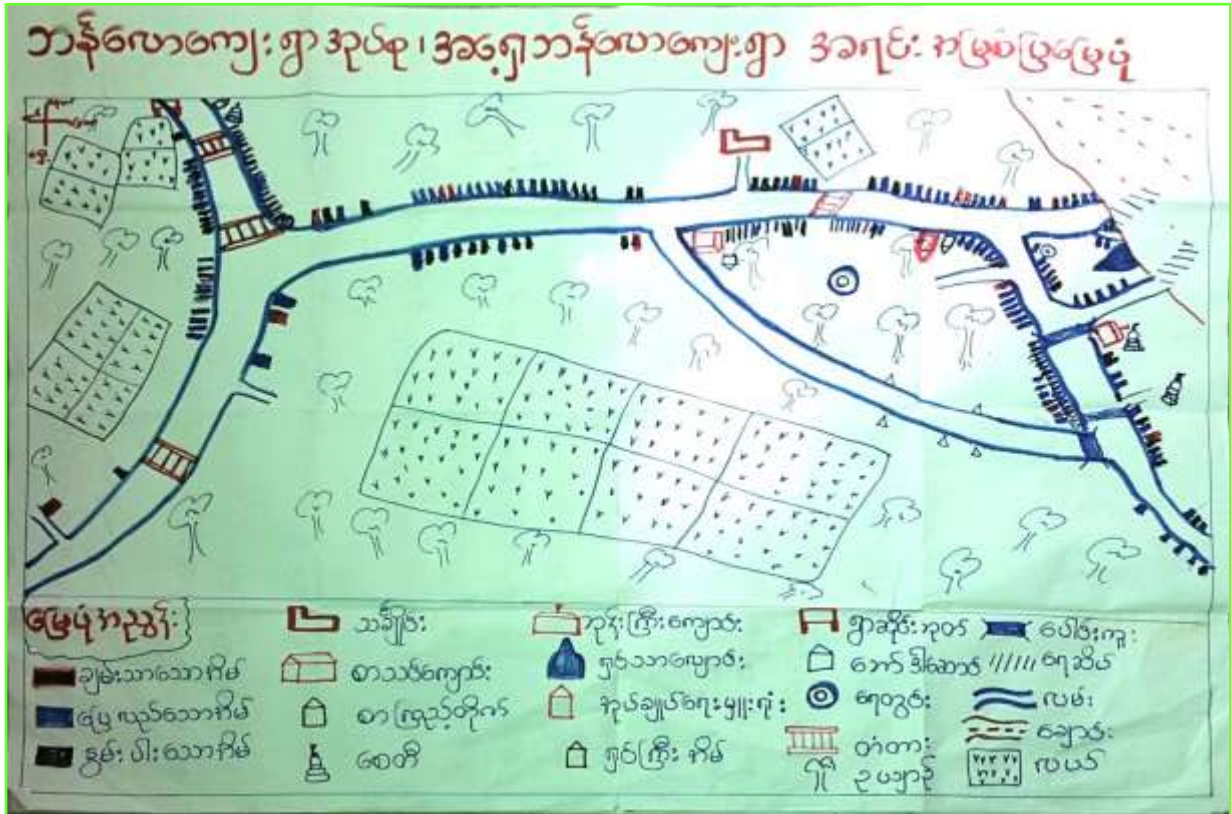 ဘန်လောကျေးရွာအုပ်စု၊ အရှေ့ဘန်လောကျေးရွာ အရင်းအမြစ်ပြမြေပုံ
မြေပုံအညွှန်း
ချမ်းသာသောအိမ်
ပြေလည်သောအိမ်
နွမ်းပါးသောအိမ်
သင်္ချိုင်း
စာသင်ကျောင်း
စာကြည့်တိုက်
စေတီ
ဘုန်းကြီးကျောင်း
အုပ်ချုပ်ရေးမှူးရုံး
ရွာဆိုင်းဘုတ်
ရေတွင်း
တံတား
ဥယျာဉ်
ပေါင်းကူး
ရေဆိပ်
လမ်း
ချောင်း
လယ်